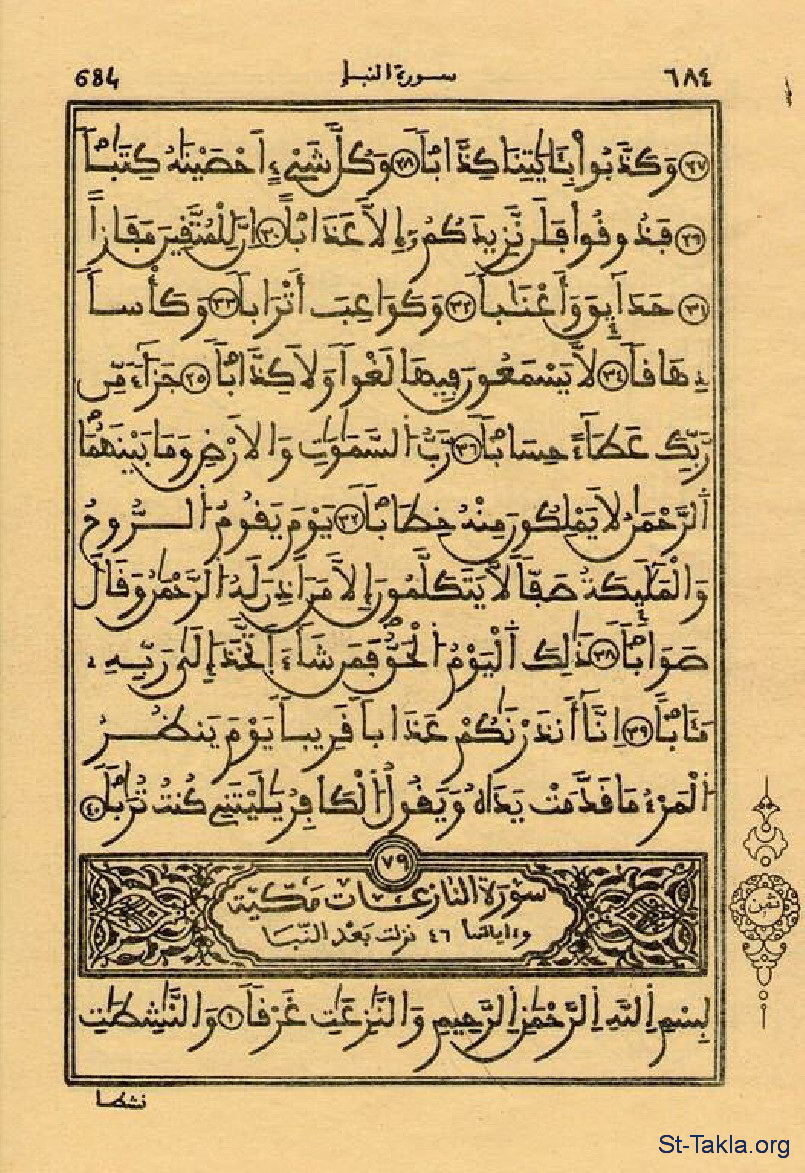 684 سورة النبإ ٦٨٤
٢٧ وَكَذَّبُواْ بِـَٔايَٰتِنَا كِذَّاباٗ ٢٨ وَكُلَّ شَيْءٍ اَحْصَيْنَٰهُ كِتَٰباٗ
٢٩ فَذُوقُواْ فَلَن نَّزِيدَكُمُۥٓ إِلَّا عَذَاباًۖ ٣٠ اِنَّ لِلْمُتَّقِينَ مَفَازاً
٣١ حَدَآئِقَ وَأَعْنَٰباٗ ٣٢ وَكَوَاعِبَ أَتْرَاباٗ ٣٣ وَكَأْساٗ
دِهَاقاٗ ٣٤ لَّا يَسْمَعُونَ فِيهَا لَغْواٗ وَلَا كِذَّاباٗ ٣٥ جَزَآءٗ مِّن
رَّبِّكَ عَطَآءً حِسَاباٗ ٣٦ رَّبُّ السَّمَٰوَٰتِ وَالَارْضِ وَمَا بَيْنَهُمَا
اَلرَّحْمَٰنُ لَا يَمْلِكُونَ مِنْهُ خِطَاباٗ ٣٧ يَوْمَ يَقُومُ اُلرُّوحُ
وَالْمَلَٰٓئِكَةُ صَفّاٗ لَّا يَتَكَلَّمُونَ إِلَّا مَنَ اَذِنَ لَهُ اُلرَّحْمَٰنُ وَقَالَ
صَوَاباٗ ٣٨ ذَٰلِكَ اَلْيَوْمُ اُلْحَقُّ فَمَن شَآءَ اَتَّخَذَ إِلَىٰ رَبِّهِۦ
مَـَٔاباً ٣٩ اِنَّآ أَنذَرْنَٰكُمْ عَذَاباٗ قَرِيباٗ يَوْمَ يَنظُرُ
اُلْمَرْءُ مَا قَدَّمَتْ يَدَاهُ وَيَقُولُ اُلْكَافِرُ يَٰلَيْتَنِي كُنتُ تُرَٰباٗ ٤٠
٧٩
سورة النازعات مكية
وءاياتها ٤٦ نزلت بعد النبا
ثمن
بِسْمِ اِللَّهِ اِلرَّحْمَٰنِ اِلرَّحِيمِ وَالنَّٰزِعَٰتِ غَرْقاٗ ١ وَالنَّٰشِطَٰتِ
نشطا
St-Takla.org